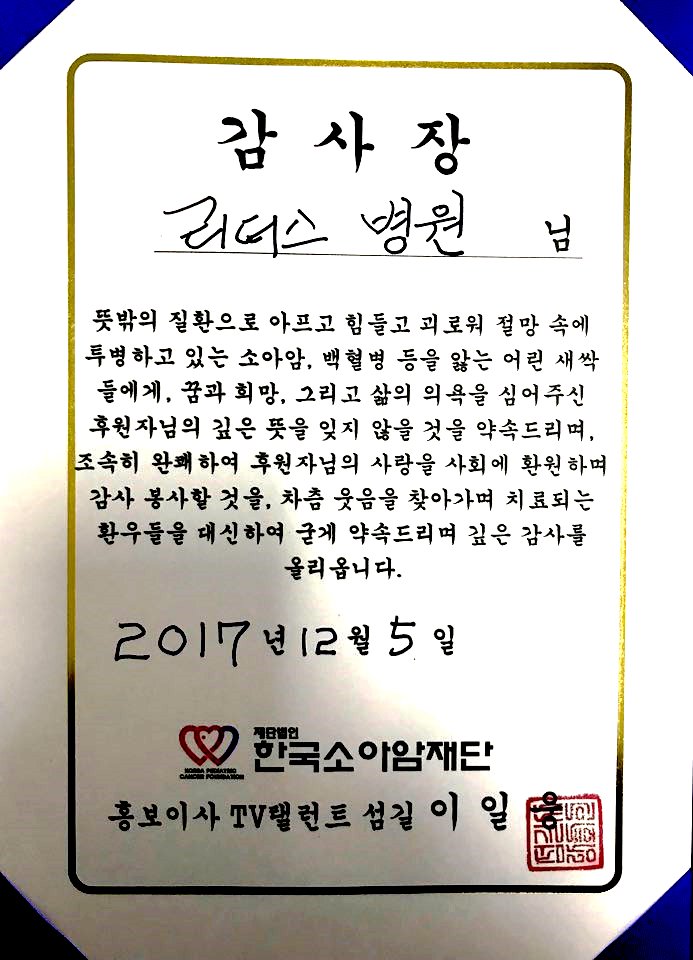 감 사 장
리더스 병원 님
뜻밖의 질환으로 아프고 힘들고 괴로워 절망 속에
투병하고 있는 소아암, 백혈병 등을 앓는 어린 새싹
들에게, 꿈과 희망, 그리고 삶의 의욕을 심어주신
후원자님의 깊은 뜻을 잊지 않을 것을 약속드리며,
조속히 완쾌하여 후원자님의 사랑을 사회에 환원하며
감사 봉사할 것을, 차츰 웃음을 찾아가며 치료되는
환우들을 대신하여 굳게 약속드리며 깊은 감사를
올리옵니다.
2017년 12월 5일
재단법인
한국소아암재단
KOREA PEDIATRIC
CANCER FOUNDATION
홍보이사 TV탤런트 섬길 이 일 웅